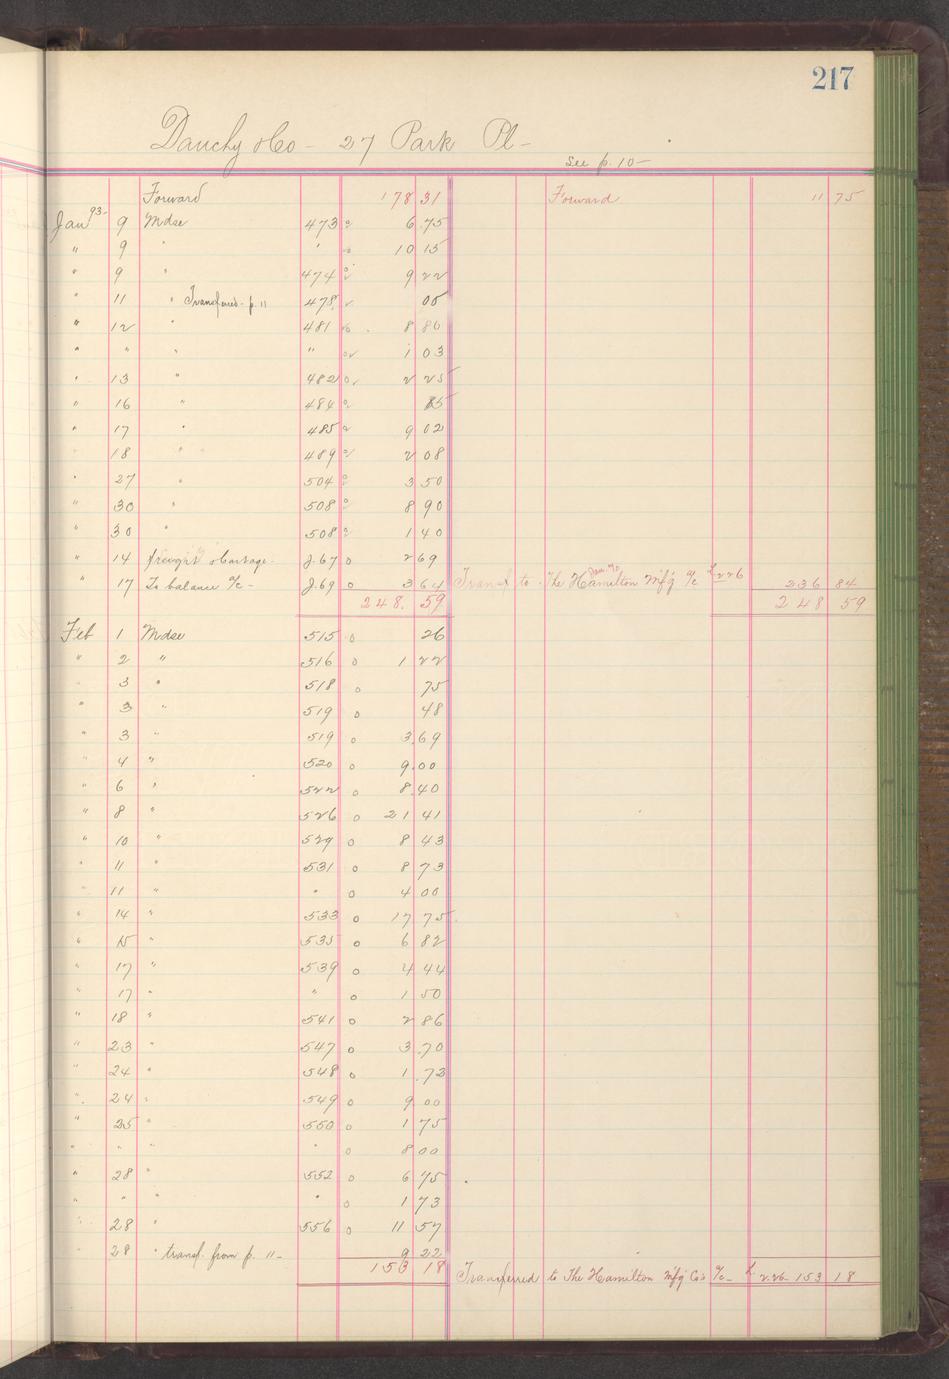 217
Dauchy & Co - 27 Park Pl -
See p. 10 -
Forward 178 31 Forward 11 75
Jan 93- 9 Mdse 473 6.75
" 9 " " 10 15
" 9 " 474 9 22
" 11 " Transferred - p. 11 478 05
" 12 " 481 8 80
" " " " 1 03
" 13 " 482 2 25
" 16 " 484 85
" 17 " 485 9 02
" 18 " 489 2 08
" 27 " 504 3 50
" 30 " 508 8 90
" 30 " 508 1 40
" 14 freight & Cartage - J. 67 0 2 69
" 17 To balance a/c - J. 69 0 3 64 Transf to The Hamilton Mfg a/c L 226 236 84
248. 59 248 59
Feb 1 Mdse 515 0 26
" 2 " 516 0 1 22
" 3 " 518 0 75
" 3 " 519 0 48
" 3 " 519 0 3.69
" 4 " 520 0 9.00
" 6 " 522 0 8.40
" 8 " 526 0 21 41
" 10 " 529 0 8 43
" 11 " 531 0 8 73
" 11 " " 0 4 00
" 14 " 533 0 17 75
" 15 " 535 0 6 82
" 17 " 539 0 4 44
" 17 " " 0 1 50
" 18 " 541 0 2 86
" 23 " 547 0 3.70
" 24 " 548 0 1.73
" 24 " 549 0 9 00
" 25 " 550 0 1 75
" " " " 0 8 00
" 28 " 552 0 6 75
" " " " 0 1 73
" 28 " 556 0 11 57
" 28 " transf. from p. 11 - 9 22
153 18 Transferred to The Hamilton Mfg Co's a/c - L 226 153 18